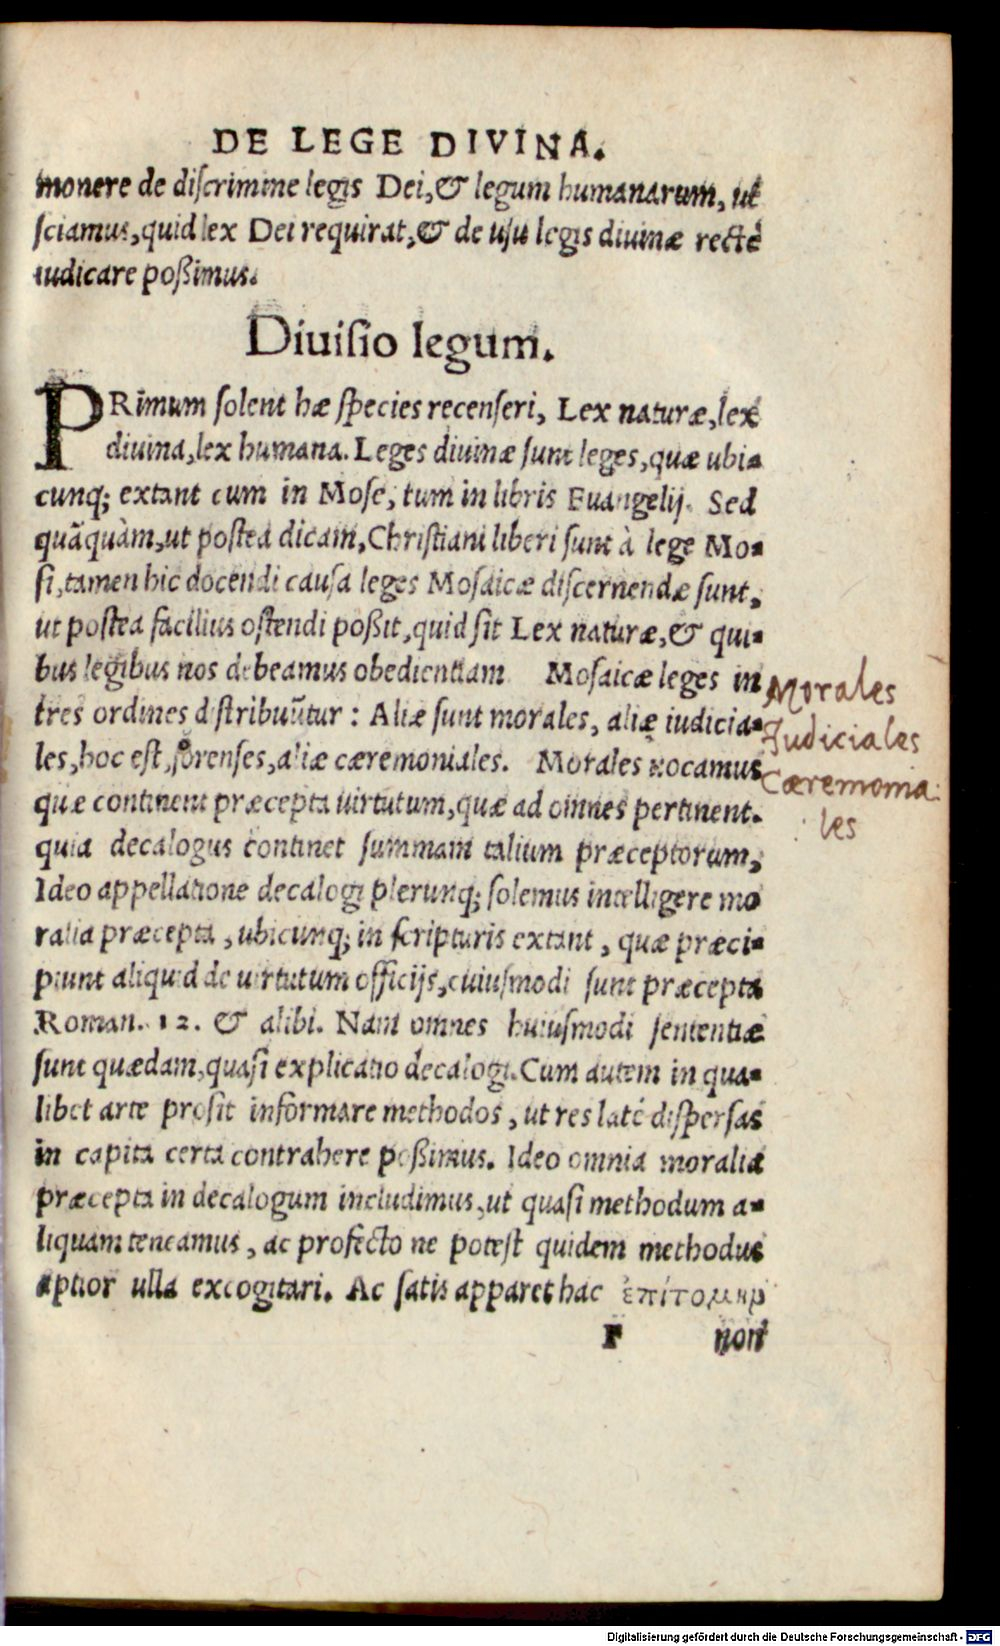 DE LEGE DIVINA.
monere de diſcrimine legis Dei, & legum humanarum, ut
ſciamus, quid lex Dei requirat, & de uſu legis diuinæ rectè
iudicare poßimus.
Diuiſio legum.
PRimum ſolent hæ ſpecies recenſeri, Lex naturæ, lex
diuina, lex humana. Leges diuinæ ſunt leges, quæ ubi-
cunq; extant cum in Moſe, tum in libris Euangelij. Sed
quãquàm, ut poſtea dicam, Chriſtiani liberi ſunt à lege Mo-
ſi, tamen hic docendi cauſa leges Moſaicæ diſcernendæ ſunt,
ut poſtea facilius oſtendi poßit, quid ſit Lex naturæ, & qui-
bus legibus nos debeamus obedientiam Moſaicæ leges in
tres ordines diſtribuũtur : Aliæ ſunt morales, aliæ iudicia-
les, hoc eſt, forenſes, aliæ cæremoniales. Morales uocamus
quæ continent præcepta uirtutum, quæ ad omnes pertinent.
quia decalogus continet ſummam talium præceptorum,
Ideo appellatione decalogi plerunq; ſolemus intelligere mo
ralia præcepta, ubicunq; in ſcripturis extant, quæ præci-
piunt aliquid de uirtutum officijs, cuiuſmodi ſunt præcepta
Roman. 12. & alibi. Nam omnes huiuſmodi ſententiæ
ſunt quædam, quaſi explicatio decalogi. Cum autem in qua-
libet arte proſit informare methodos, ut res latè diſperſas
in capita certa contrahere poßimus. Ideo omnia moralia
præcepta in decalogum includimus, ut quaſi methodum a-
liquam teneamus, ac profecto ne poteſt quidem methodus
aptior ulla excogitari. Ac ſatis apparet hac ἐπίτομὴν
F non
Morales
Judiciales
Cæremonia
les
Digitalisierung gefördert durch die Deutsche Forschungsgemeinschaft - DFG